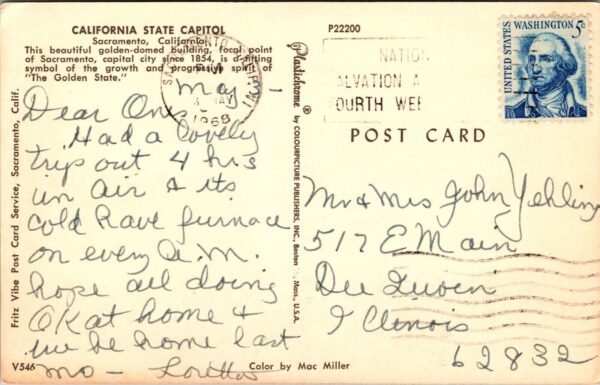 CALIFORNIA STATE CAPITOL
Sacramento, California
This beautiful golden-domed building, focal point
of Sacramento, capital city since 1854, is a fitting
symbol of the growth and progressive spirit of
"The Golden State."
May 3-
Dear Ones
Had a lovely
trip out 4 hrs
in air & its
cold have furnace
on every a.m.
hope all doing
OK at home &
we be home last
mo - Loretta
V546
Color by Mac Miller
Fritz Vibe Post Card Service, Sacramento, Calif.
Plastichrome ® by COLOURPICTURE PUBLISHERS, INC., Boston, Mass., U.S.A.
P22200
MAY
1968
NATIO
ALVATION A
FOURTH WEE
UNITED STATES
WASHINGTON 5c
POST CARD
Mr & Mrs John Yehling
517 E Main
Du Quoin
Illinois
62832